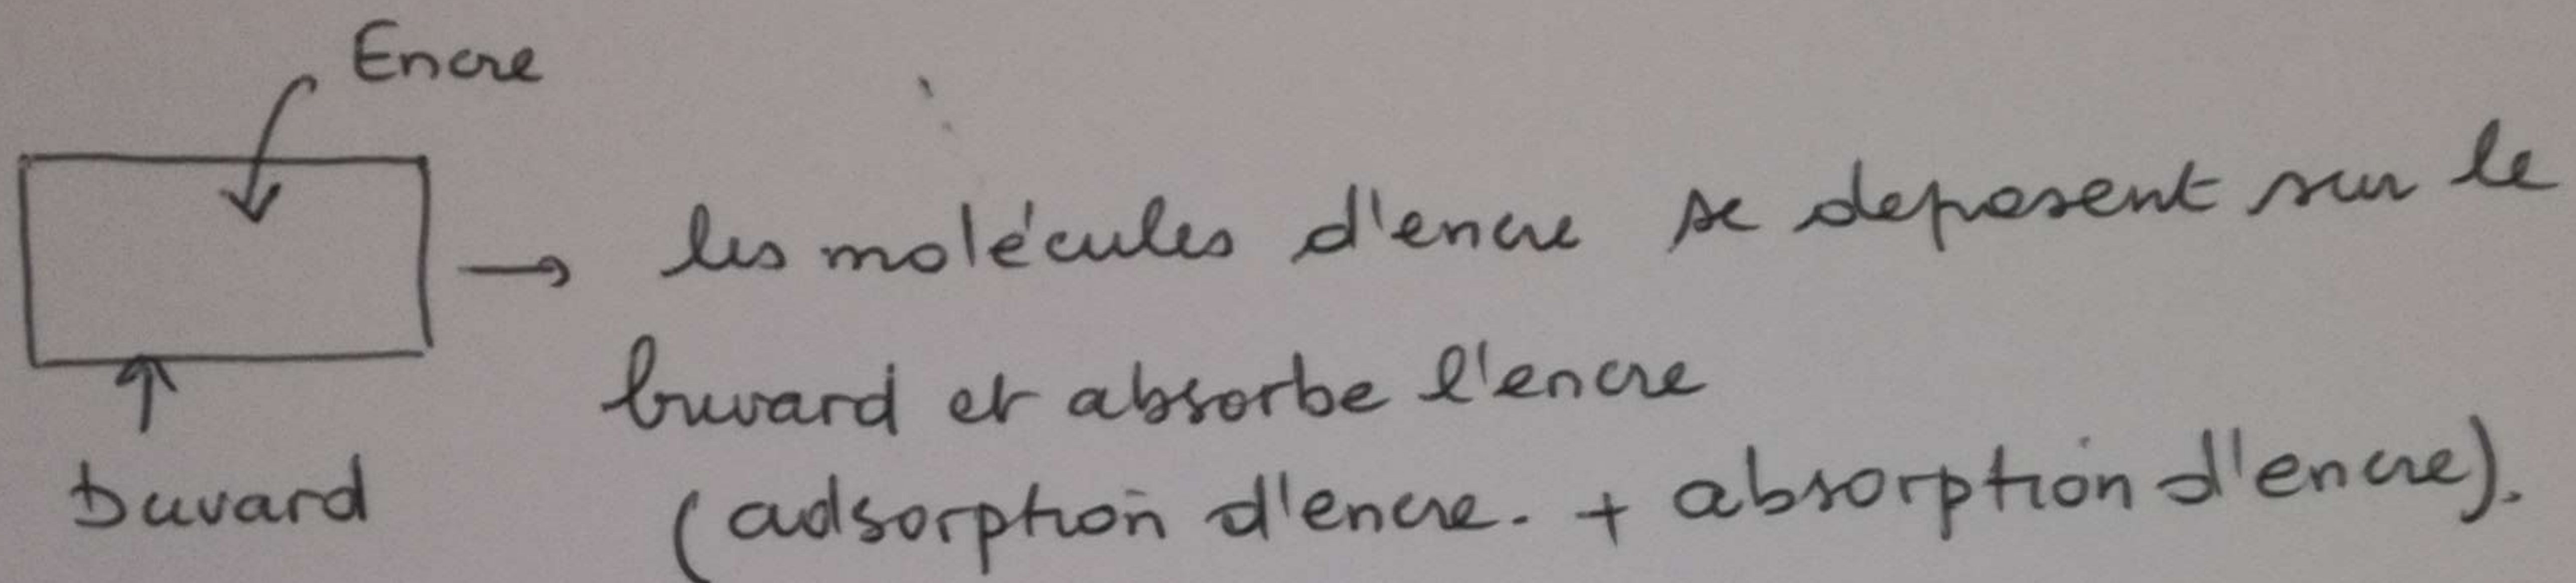 Encre
→ les molécules d'encre se deposent sur le
buvard et absorbe l'encre
buvard
(adsorption d'encre. + absorption d'encre).